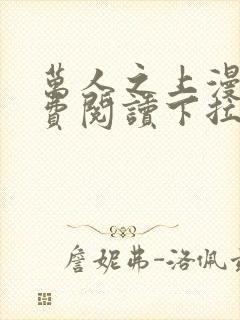 萬人之上漫
費閱讀下拉
詹妮弗-洛佩